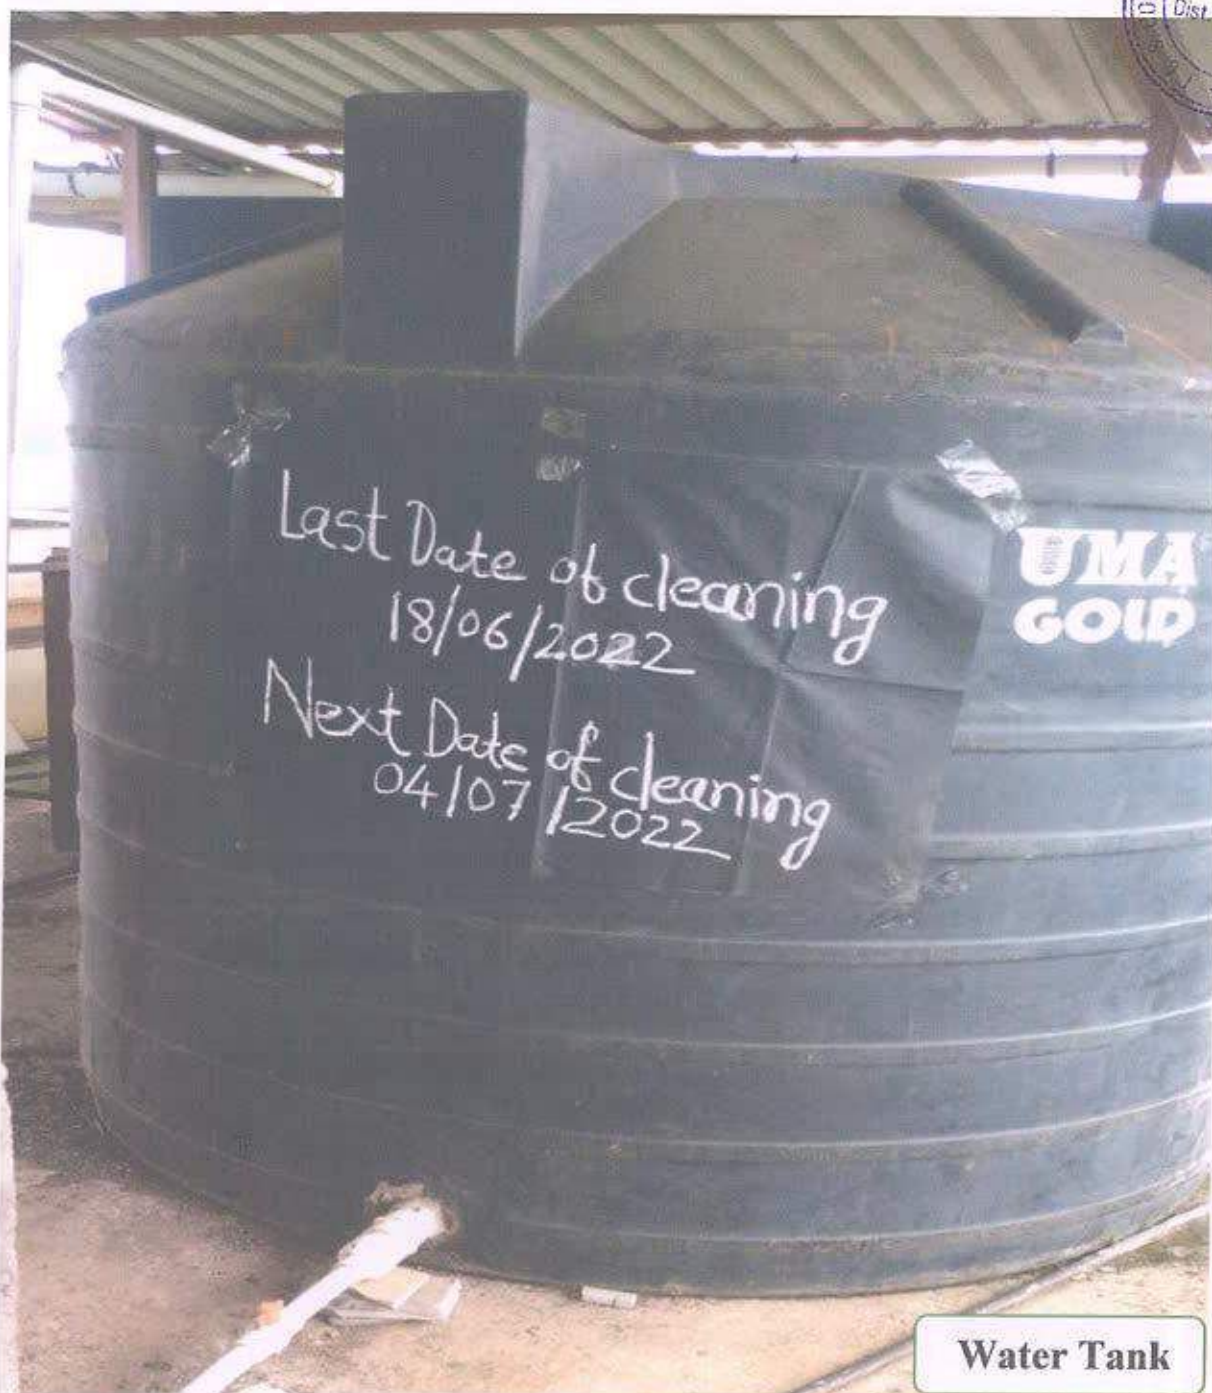 Dist
Last Date of cleaning
18/06/2022
Next Date of cleaning
04/07/2022
UMA
GOLD
Water Tank